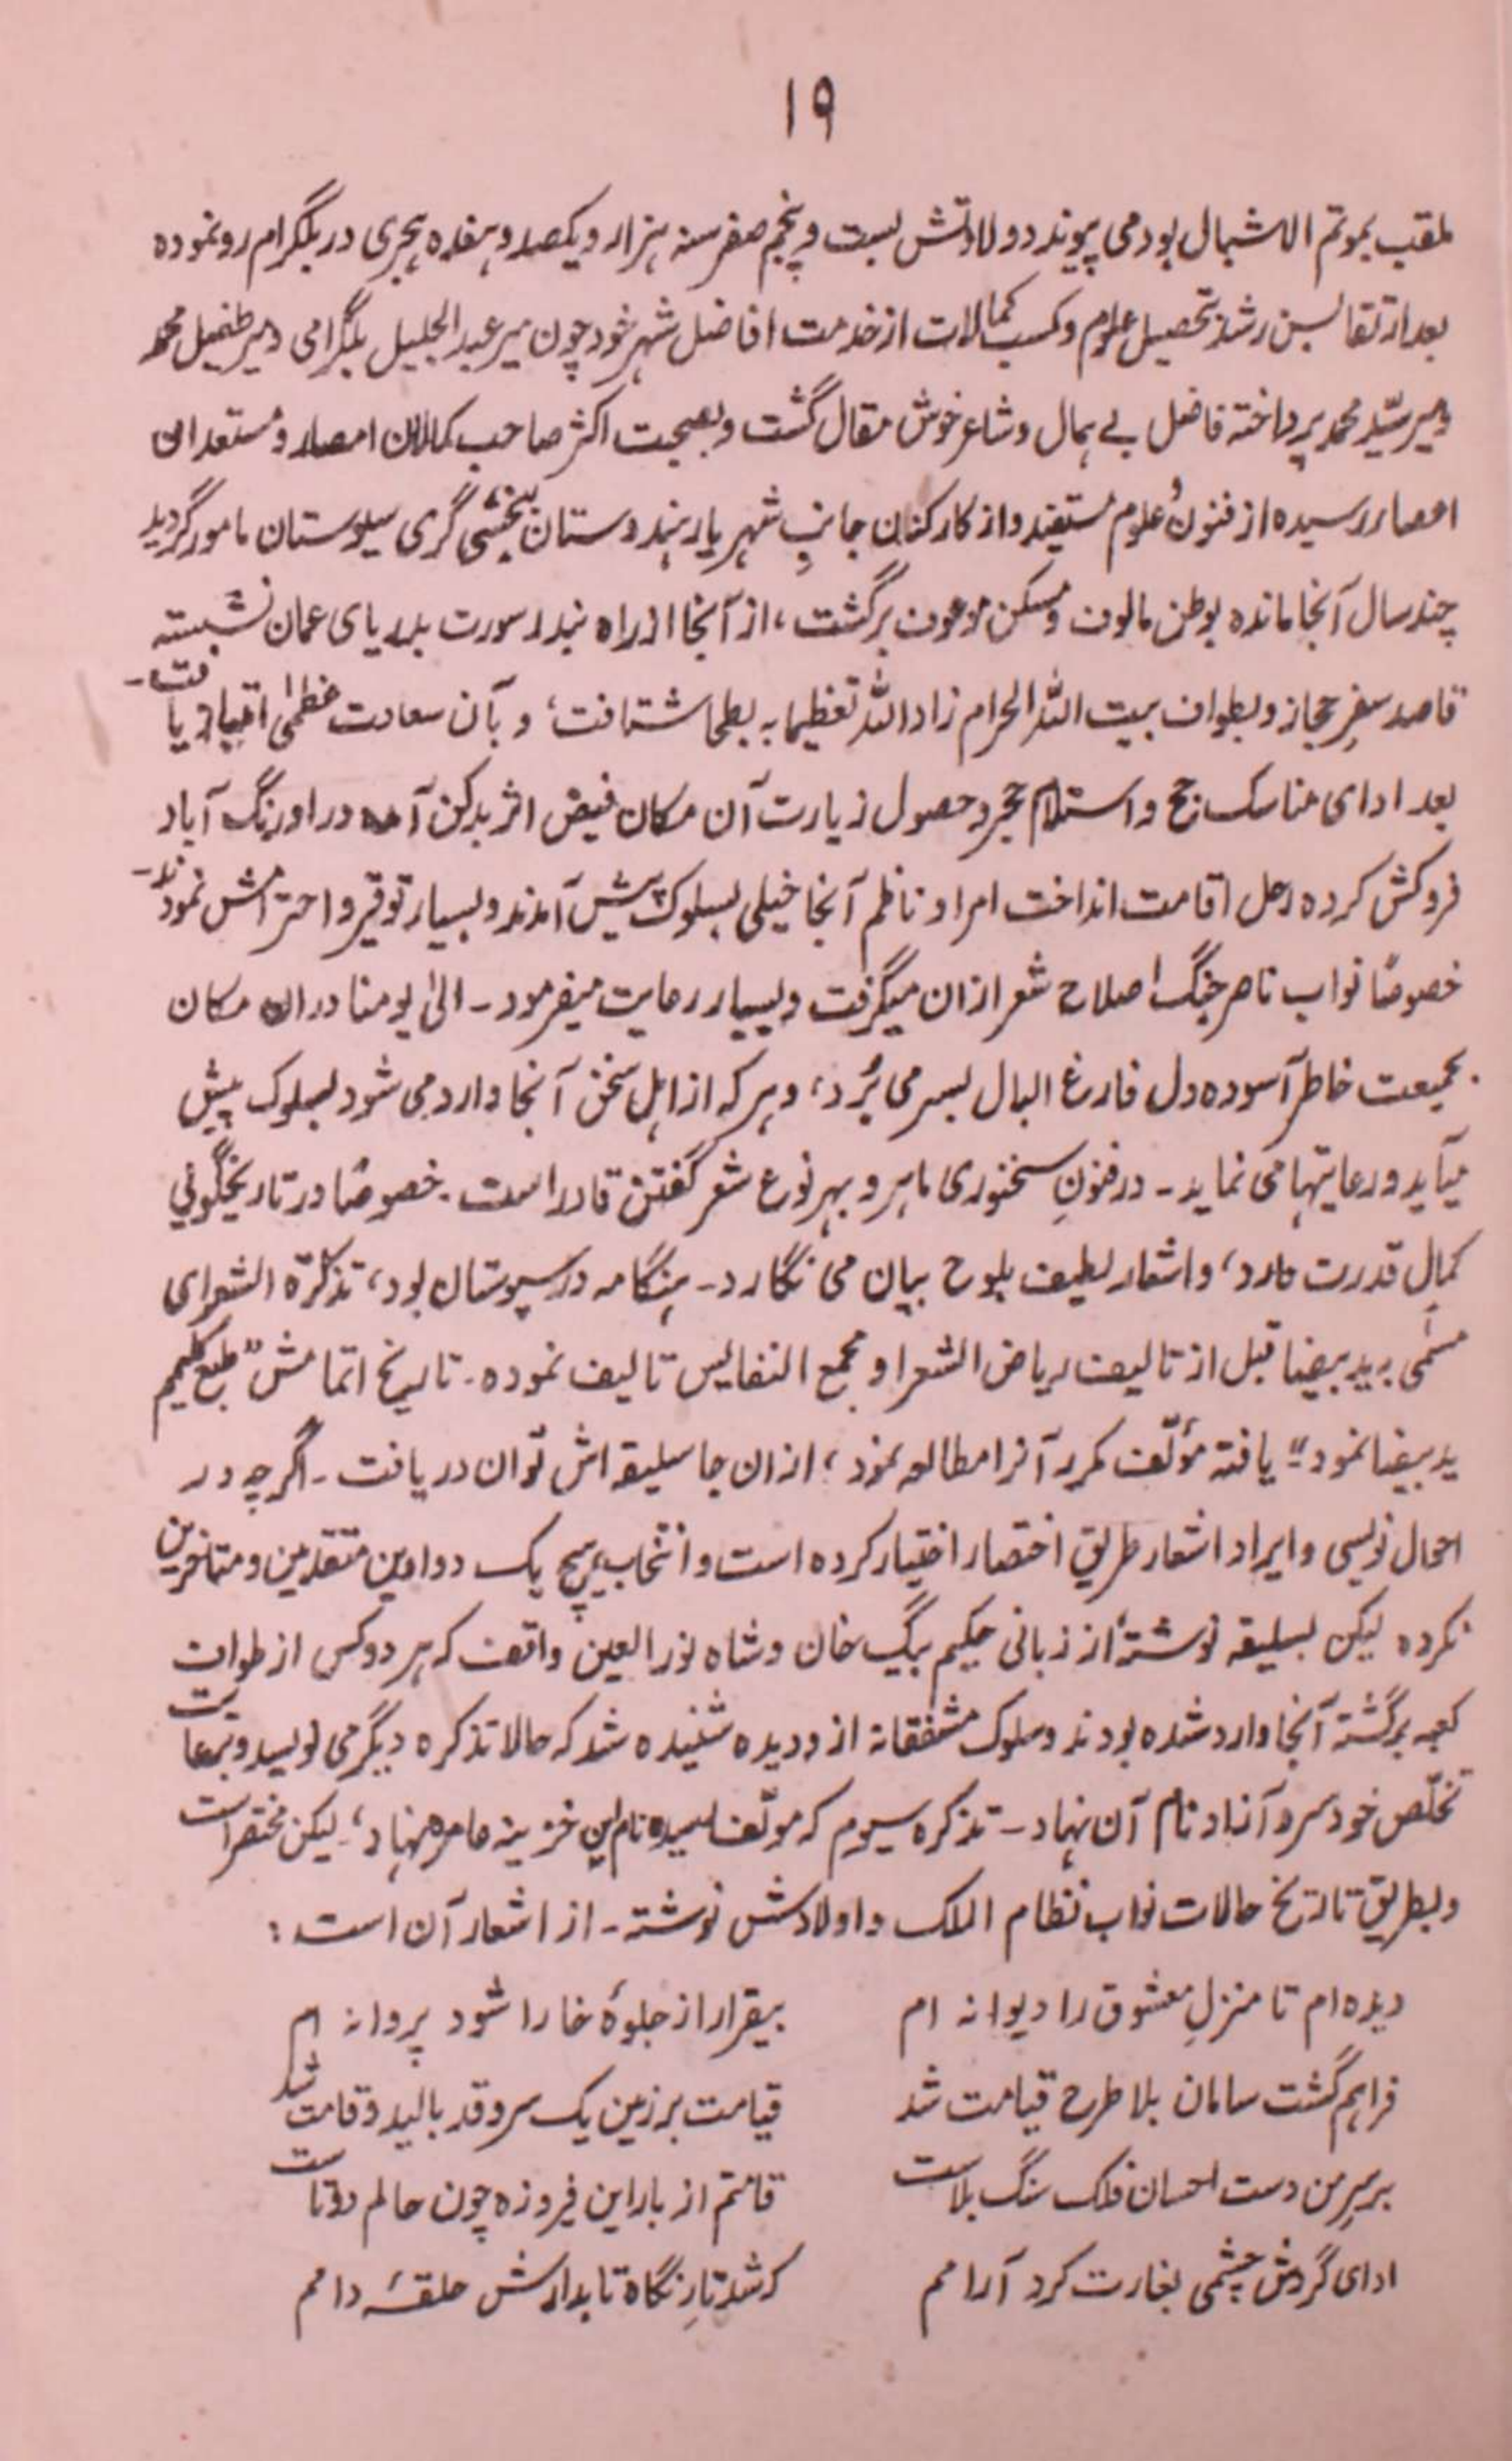 ۱۹
ملقب بموتم الاشبال بود می پیوندد ولادتش بست و پنجم صفر سنه هزار و یکصد و هفده هجری در بلگرام رو نموده
بعد ارتقا بسن رشد تحصیل علوم و کسب کمالات از خدمت افاضل شهر خود چون میر عبدالجلیل بلگرامی و میر طفیل محمد
و میر سیّد محمد پرداخته فاضل بے همال و شاعر خوش مقال گشت و بصحبت اکثر صاحب کمالان امصار و مستعدان
اعصار رسیده از فنون و علوم مستفید و از کارکنان جانبِ شهریار هندوستان به بخشی گری سیوستان مامور گردید
چند سال آنجا مانده بوطن مالوف و مسکن موعوف برگشت، از آنجا از راه بندر سورت بدریای عمان نشسته
قاصد سفرِ حجاز و بطواف بیت الله الحرام زاد الله تعظیما به بطحا شتافت، و بآن سعادت عظمٰی امتیاز یافت۔
بعد ادای مناسک حج و استلام حجر و حصول زیارت آن مکان فیض اثر بدکن آمده در اورنگ آباد
فروکش کرده رحل اقامت انداخت امرا و ناظم آنجا خیلی بسلوک پیش آمدند و بسیار توقیر و احترامش نمودند۔
خصوصًا نواب ناصر جنگ اصلاح شعر ازان میگرفت و بسیار رعایت میفرمود۔ الیٰ یومنا دران مکان
بجمیعت خاطر آسوده دل فارغ البال بسر می بُرد، و هر که از اهلِ سخن آنجا وارد می شود بسلوک پیش
میآید و رعایتها می نماید۔ در فنونِ سخنوری ماهر و بهر نوع شعر گفتن قادر است۔ خصوصًا در تاریخگوئی
کمالِ قدرت دارد، و اشعار لطیف بلوح بیان می نگارد۔ هنگامه در سیوستان بود، تذکرة الشعرای
مسمّی به ید بیضا قبل از تالیف ریاض الشعرا و مجمع النفایس تالیف نموده۔ تاریخ اتمامش "طبع کلیم
ید بیضا نمود" یافته مؤلّف مکرر آنرا مطالعه نمود، ازان جا سلیقه اش توان دریافت۔ اگرچه در
احوال نویسی و ایراد اشعار طریق اختصار اختیار کرده است و انتخاب هیچ یک دواوین متقدمین و متاخرین
نکرده لیکن بسلیقه نوشته از زبانی حکیم بیگ خان و شاه نورالعین واقف که هر دو کس از طواف
کعبه برگشته آنجا وارد شده بودند و سلوک مشفقانه ازو دیده شنیده شد که حالا تذکره دیگر می نویسد و برعایت
تخلّص خود سرو آزاد نام آن نهاد۔ تذکره سیوم که مولّف دیده نام این خزینه عامره نهاد، لیکن مختصر است
و بطریق تاریخ حالات نواب نظام الملک و اولادش نوشته۔ از اشعار آن است:
دیده ام تا منزلِ معشوق را دیوانه ام    بیقرار از جلوۂ خارا شود پروانه ام
فراهم گشت سامان بلا طرح قیامت شد    قیامت بر زمین یک سرو قد بالید و قامت شد
بر سرِ من دست احسان فلک سنگ بلاست    قامتم از بار این فیروزه چون حالم دوتاست
ادای گردش چشمی بغارت کرد آرامم    که شد تارِ نگاه تابدارش حلقۂ دامم